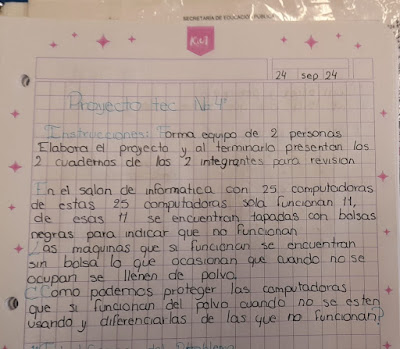 SECRETARÍA DE EDUCACIÓN PÚBLICA
Kiut
24 sep 24
Proyecto tec Nº 4
Instrucciones: Forma equipo de 2 personas
Elabora el proyecto y al terminarlo presentan los
2 cuadernos de los 2 integrantes para revision
En el salon de informatica con 25 computadoras
de estas 25 computadoras sola funcionan 11,
de esas 11 se encuentran tapadas con bolsas
negras para indicar que no funcionan
Las maquinas que si funcionan se encuentran
sin bolsa lo que ocasionan que cuando no se
ocupan se llenen de polvo.
¿Como podemos proteger las computadoras
que si funcionan del polvo cuando no se esten
usando y diferenciarlas de las que no funcionan?